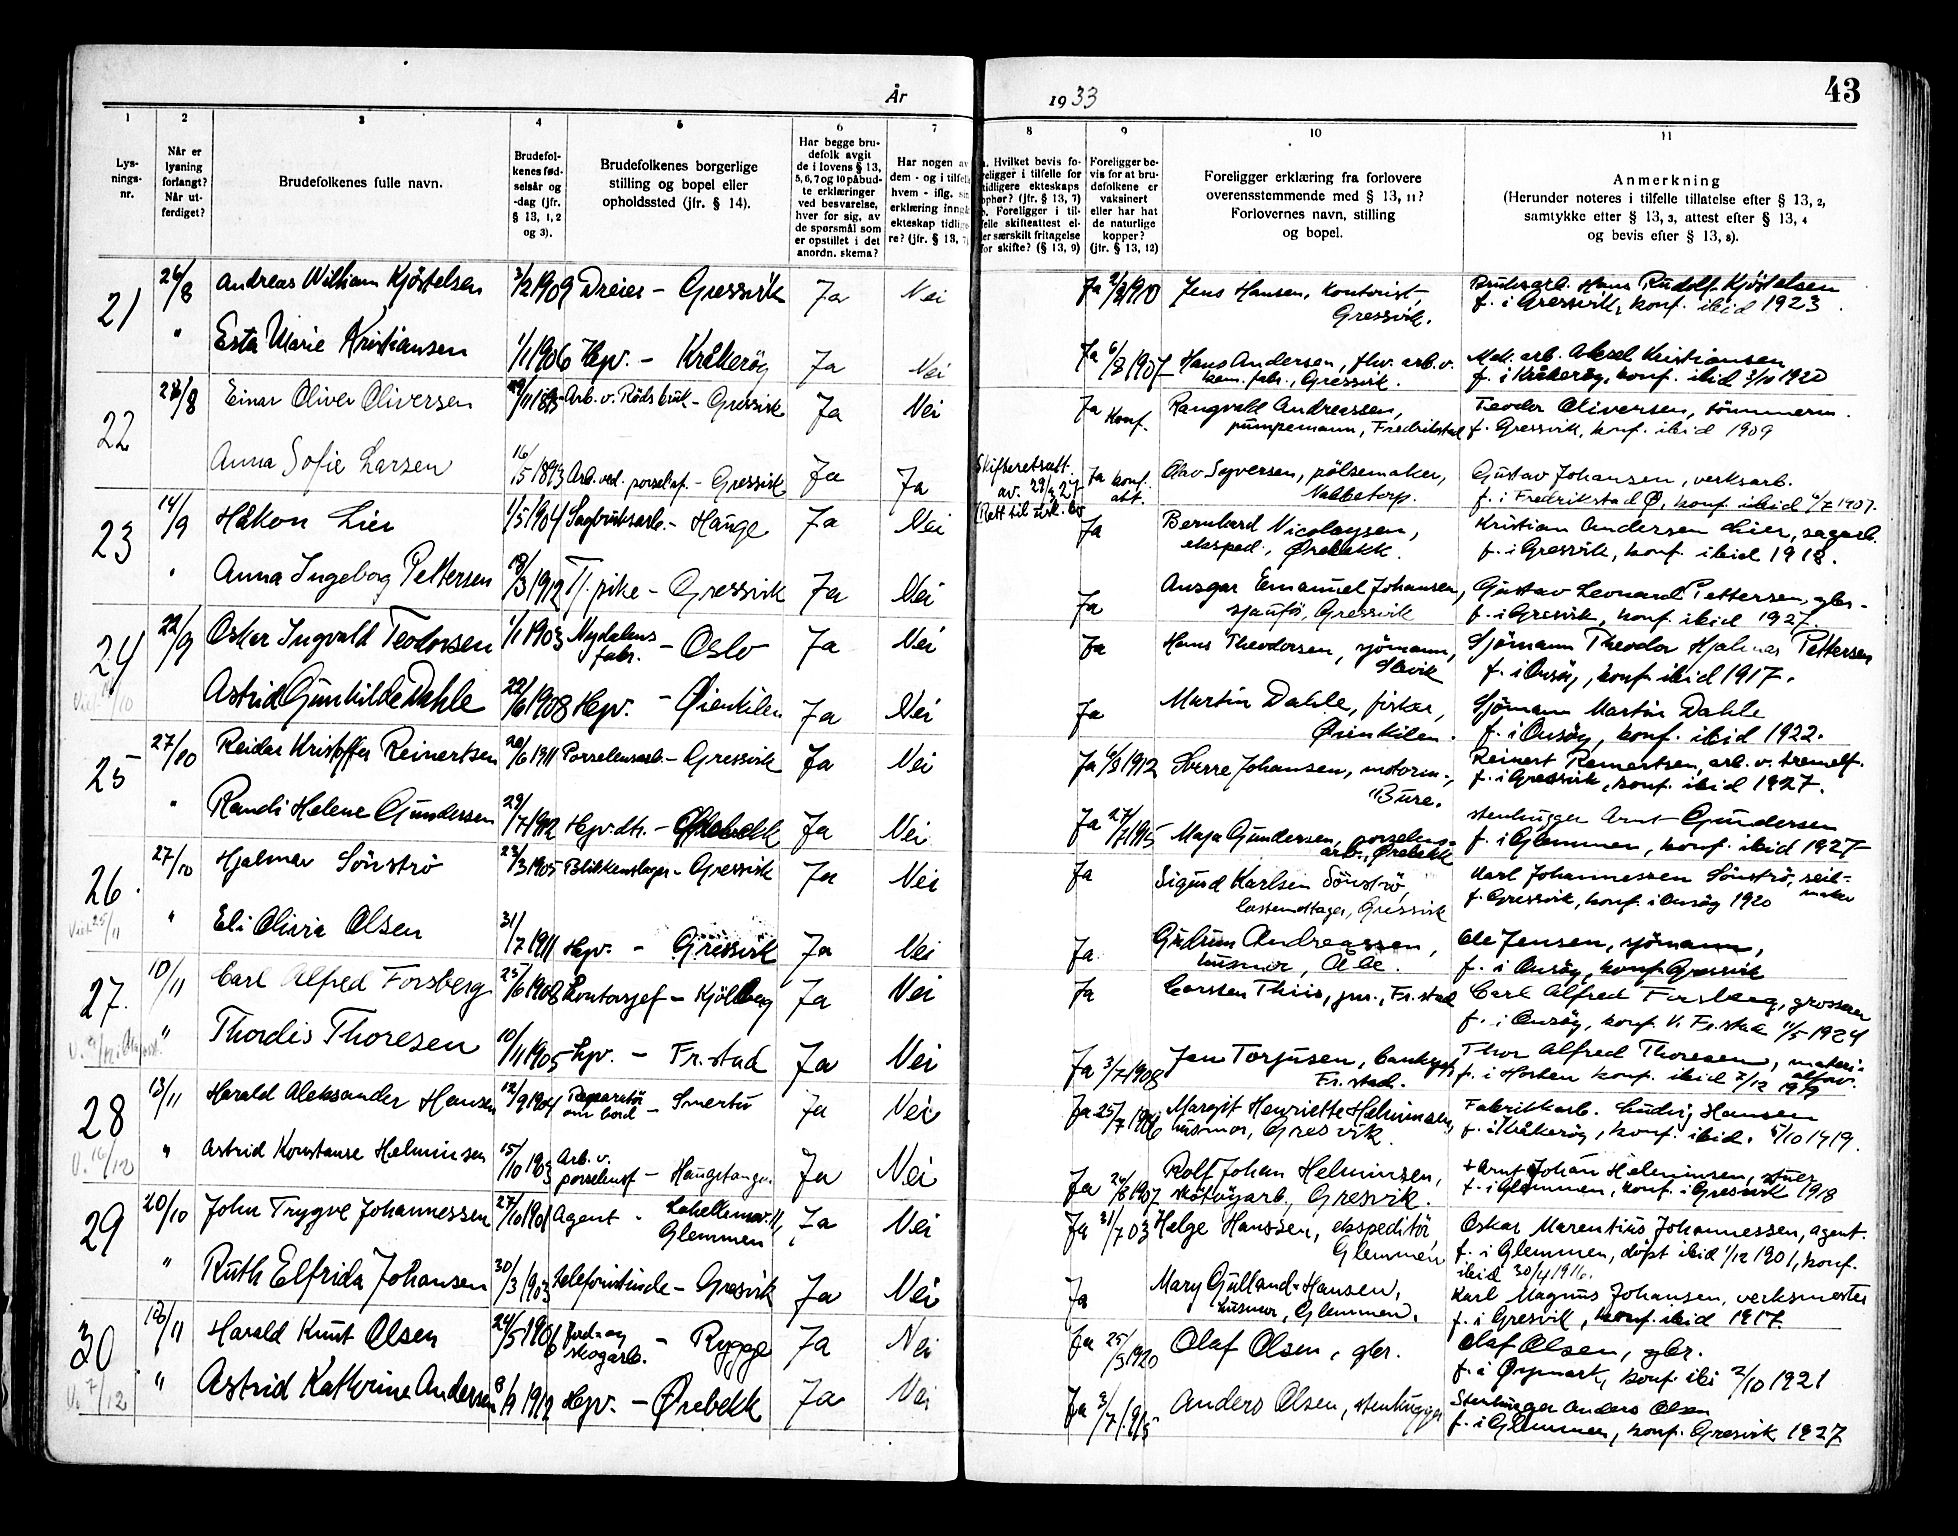 År 1933
43
1 2 3 4 5 6 7 8 9 10 11
Lys-
nings-
nr.
Når er
lysning
forlangt?
Når ut-
ferdiget?
Brudefolkenes fulle navn.
Brudefol-
kenes fød-
selsår og
-dag (jfr.
§ 13, 1, 2
og 3).
Brudefolkenes borgerlige
stilling og bopel eller
opholdssted (jfr. § 14).
Har begge bru-
defolk avgit
de i lovens § 13,
5, 6, 7 og 10 påbud-
te erklæringer
ved besvarelse,
hver for sig, av
de spørsmål som
er opstillet i det
anordn. skema?
Har nogen av
dem - og i tilfelle
hvem - iflg. sin
erklæring inngått
ekteskap tidlige-
re? (jfr. § 13, 7)
a. Hvilket bevis fo-
religger i tilfelle for
tidligere ekteskaps
ophør? (jfr. § 13, 7)
b. Foreligger i til-
felle skifteattest el-
ler særskilt fritagelse
for skifte? (§ 13, 9)
Foreligger be-
vis for at bru-
defolkene er
vaksinert
eller har hat
de naturlige
kopper?
(jfr. § 13, 12)
Foreligger erklæring fra forlovere
overensstemmende med § 13, 11?
Forlovernes navn, stilling
og bopel.
Anmerkning
(Herunder noteres i tilfelle tillatelse efter § 13, 2,
samtykke efter § 13, 3, attest efter § 13, 4
og bevis efter § 13, 8).
21 26/8 Andreas William Kjöstelsen 3/2 1909 Dreier - Gressvik Ja Nei Ja 2/2 1910 Jens Hansen, kontorist, Gressvik. Bruksarb. Hans Rudolf Kjöstelsen
f. i Gressvik, konf. ibid 1923.
" Esta Marie Kristiansen 1/1 1906 Hpv. - Kråkeröy Ja Nei Ja 6/8 1907 Hans Andersen, flw. arb. v. kem. fabr., Gressvik. Mek. arb. Aksel Kristiansen
f. i Kråkeröy, konf. ibid 3/10 1920
22 28/8 Einar Oliver Oliversen 29/11 1895 Arb. v. Röds bruk - Gressvik Ja Nei Ja konf. Rangvald Andreassen,
pumpemann, Fredrikstad Teodor Oliversen, tömmerm.
f. Gressvik, konf. ibid 1909
Anna Sofie Larsen 16/5 1893 Arb. ved. porsel.af. - Gressvik Ja Ja Skifteretsatt.
av. 29/3 27 Ja konf. att. Olav Syversen, pölsemaker,
Nabbetorp. Gustav Johansen, verksarb.
f. i Fredrikstad Ø, konf. ibid 6/7 1907.
23 14/9 Håkon Lier 1/5 1904 Sagbruksarb. - Hauge Ja Nei Ja Bernhard Nicolaysen,
eksped., Ørebekk. Kristian Andersen Lier, sagarb.
f. i Gressvik, konf. ibid 1918.
" Anna Ingeborg Pettersen 18/3 1912 Tj. pike - Gressvik Ja Nei Ja Ansgar Emanuel Johansen,
sjaufö, Gressvik Gustav Leonard Pettersen, gbr.
f. i Gresvik, konf. ibid 1927.
24 22/9 Oskar Ingvald Teodorsen 1/1 1903 Nydalens
fabr. - Oslo Ja Nei Ja Hans Theodorsen, sjömann,
Slevik Sjömann Theodor Hjalmar Pettersen
f. i Onsöy, konf. ibid 1917.
Astrid Gunhilde Dahle 22/6 1908 Hpv. - Øienkilen Ja Nei Ja Martin Dahle, fisker,
Øienkilen. Sjömann Martin Dahle
f. i Onsöy, konf. ibid 1922.
25 27/10 Reidar Kristoffer Reinertsen 20/6 1911 Porselensarb. - Gressvik Ja Nei Ja 6/9 1912 Sverre Johansen, motorm.,
Bure. Reinert Reinertsen, arb. v. tremelf.
f. i Gressvik, konf. ibid 1927.
" Randi Helene Gundersen 29/7 1912 Hpv. dtr. - Ørebekk Ja Nei Ja 27/2 1915 Maja Gundersen, porselens-
arb., Ørebekk Stenhugger Arnt Gundersen
f. i Glemmen, konf. ibid 1927
26. 27/10 Hjalmar Sönströ 23/3 1905 Blikkenslager - Gressvik Ja Nei Ja Sigurd Karlsen Sönströ,
lastemottager, Gressvik Karl Johannessen Sönströ, seil-
maker
f. Gressvik, konf. i Onsöy 1920
Viet 25/11 " Eli Olivia Olsen 31/7 1911 Hpv. - Gressvik Ja Nei Ja Gudrun Andreassen,
husmor, Åle. Ole Jensen, sjömann,
f. i Onsöy, konf. Gressvik
27. 10/11 Carl Alfred Forsberg 25/6 1908 Kontorsjef - Kjölberg Ja Nei Ja Carsten Thiis, jur., Fr.stad Carl Alfred Forsberg, grosserer
f. i Onsöy, konf. V. Fr.stad 11/5 1924
" Thordis Thoresen 10/11 1905 Hpv. - Fr. stad Ja Nei Ja 3/7 1908 Jan Torjusen, bankass.
Fr. stad. Thor Alfred Thoresen, materi-
alforv.
f. i Horten konf. ibid 7/12 1919
28 13/11 Harald Aleksander Hansen 12/9 1904 Reparatör
om bord - Smertu Ja Nei Ja 25/7 1906 Margit Henriette Helminsen,
husmor, Gresvik. Fabrikkarb. Ludvig Hansen
f. i Kråkeröy, konf. ibid. 5/10 1919.
V. 16/12 " Astrid Konstanse Helminsen 15/10 1903 Arb. v.
porselensf - Haugstangen Ja Nei Ja 26/8 1907 Rolf Johan Helminsen,
skötöyarb., Gresvik. + Arnt Johan Helminsen, stuer
f. i Glemmen, konf. i Gresvik 1918
29 20/10 John Trygve Johannessen 27/10 1901 Agent - Lahellemov. 11,
Glemmen Ja Nei Ja 31/7 03 Helge Hanssen, ekspeditör,
Glemmen Oskar Marentius Johannessen, agent.
f. i Glemmen, döpt ibid 1/12 1901, konf.
ibid 30/4 1916.
" Ruth Elfrida Johansen 30/3 1903 Telefonistinde - Gresvik Ja Nei Ja Mary Gulland-Hansen,
husmor, Glemmen. Karl Magnus Johansen, verksmester
f. i Gresvik, konf. ibid 1917
30 18/11 Harald Knut Olsen 24/5 1906 Jord- og
skogarb. - Rygge Ja Nei Ja 25/9 1920 Olaf Olsen, gbr. Olaf Olsen, gbr.
f. i Øymark, konf. ibi 2/10 1921
V. 7/12 " Astrid Kathrine Andersen 8/9 1912 Hpv. - Ørebekk Ja Nei Ja 3/7 1915 Anders Olsen, stenhugger Stenhugger Anders Olsen
f. i Glemmen, konf. Gresvik 1927